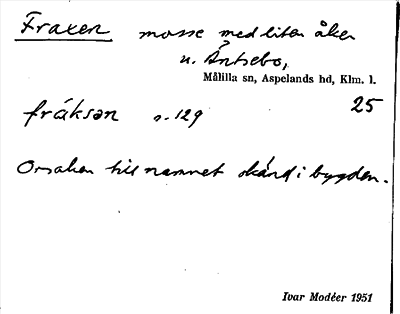 Fraxen mosse med liten åker
u. Äntsebo,
Målilla sn, Aspelands hd, Klm. l.
25
fráksən s. 129
Orsaken till namnet okänd i bygden.
Ivar Modéer 1951